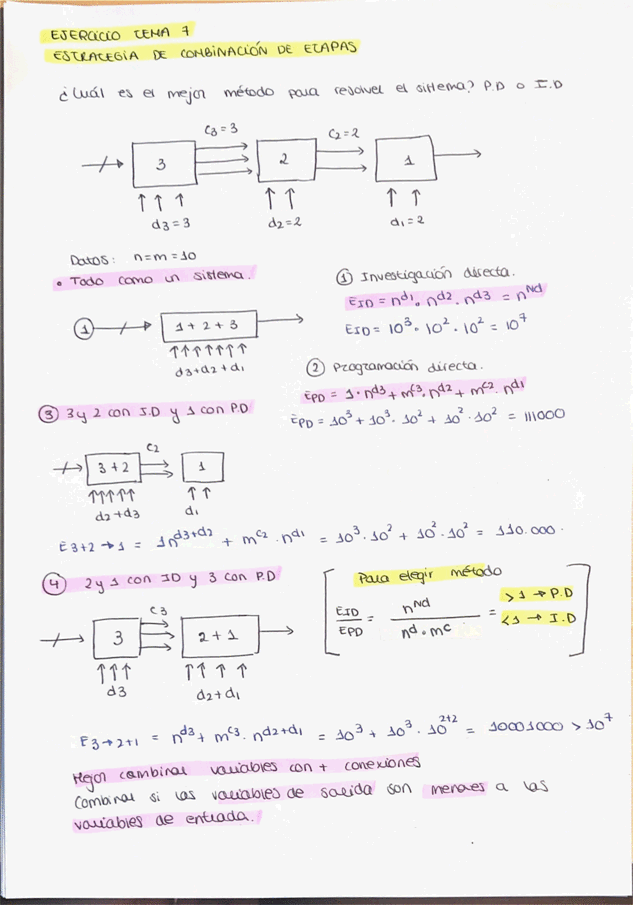 EJERCICIO TEMA 7
ESTRATEGIA DE COMBINACIÓN DE ETAPAS
¿Cuál es el mejor método para resolver el sistema? P.D o I.D
C₃=3
C₂=2
3
2
1
d₃=3
d₂=2
d₁=2
Datos: n=m=10
• Todo como un sistema.
1
1+2+3
d₃+d₂+d₁
① Investigación directa.
E_ID = n^d1 · n^d2 · n^d3 = n^Nd
E_ID = 10³ · 10² · 10² = 10⁷
② Programación directa.
E_PD = 1·n^d3 + m^c3 · n^d2 + m^c2 · n^d1
E_PD = 10³ + 10³ · 10² + 10² · 10² = 111000
③ 3 y 2 con I.D y 1 con P.D
C₂
3+2
1
d₂+d₃
d₁
E 3+2→1 = 1n^d3+d2 + m^c2 · n^d1 = 10³ · 10² + 10² · 10² = 110.000.
④ 2 y 1 con ID y 3 con P.D
C₃
3
2+1
d₃
d₂+d₁
Para elegir método
E_ID / E_PD = n^Nd / n^d · m^c = >1 → P.D
<1 → I.D
E 3→2+1 = n^d3 + m^c3 · n^d2+d1 = 10³ + 10³ · 10^2+2 = 10001000 > 10⁷
Mejor combinar variables con + conexiones
Combinar si las variables de salida son menores a las
variables de entrada.